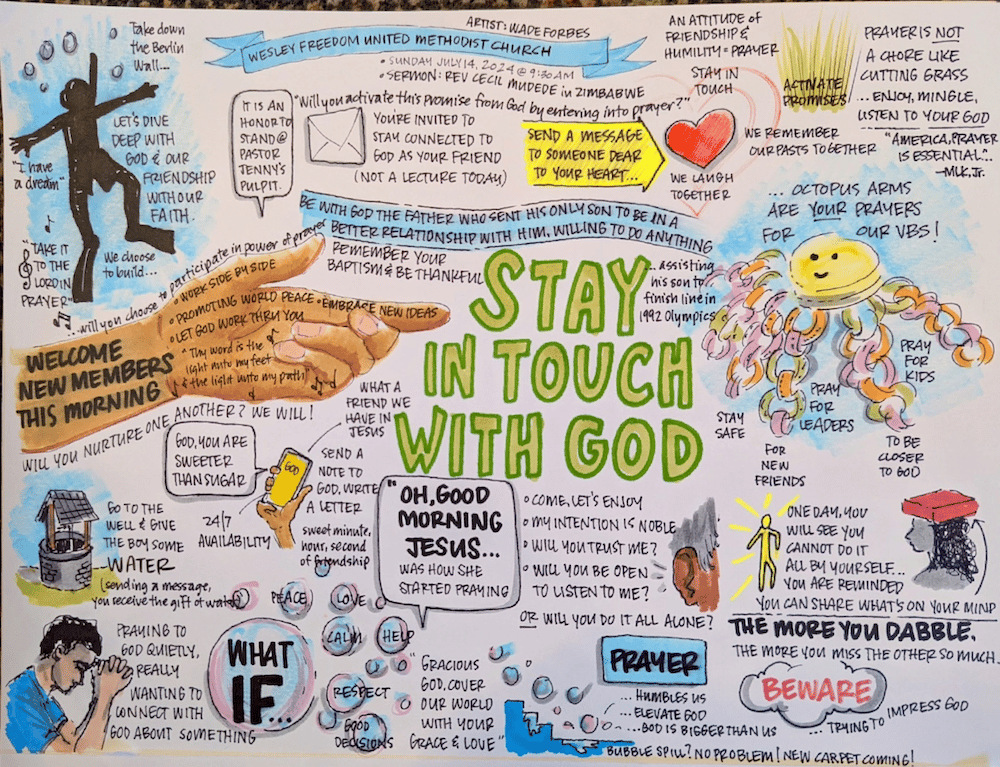 ARTIST: WADE FORBES
WESLEY FREEDOM UNITED METHODIST CHURCH
• SUNDAY JULY 14, 2024 @ 9:30 AM
• SERMON: REV CECIL MUDEDE in ZIMBABWE
Take down
the Berlin
Wall...
LET'S DIVE
DEEP WITH
GOD & OUR
FRIENDSHIP
WITH OUR
FAITH.
"I have
a dream"
"TAKE IT
TO THE
LORD IN
PRAYER"
We choose
to build...
IT IS AN
HONOR TO
STAND @
PASTOR
JENNY'S
PULPIT.
"Will you activate this promise from God by entering into prayer?"
YOU'RE INVITED TO
STAY CONNECTED TO
GOD AS YOUR FRIEND
(NOT A LECTURE TODAY)
SEND A MESSAGE
TO SOMEONE DEAR
TO YOUR HEART...
AN ATTITUDE of
FRIENDSHIP &
HUMILITY = PRAYER
STAY IN
TOUCH
WE REMEMBER
OUR PASTS TOGETHER
WE LAUGH
TOGETHER
ACTIVATE
PROMISES
PRAYER IS NOT
A CHORE LIKE
CUTTING GRASS
... ENJOY, MINGLE,
LISTEN TO YOUR GOD
"AMERICA, PRAYER
IS ESSENTIAL".
—MLK, Jr.
BE WITH GOD THE FATHER WHO SENT HIS ONLY SON TO BE IN A
BETTER RELATIONSHIP WITH HIM, WILLING TO DO ANYTHING
REMEMBER YOUR
BAPTISM & BE THANKFUL
... assisting
his son to
finish line in
1992 Olympics
... OCTOPUS ARMS
ARE YOUR PRAYERS
FOR OUR VBS!
STAY
SAFE
FOR
NEW
FRIENDS
PRAY
FOR
LEADERS
PRAY
FOR
KIDS
TO BE
CLOSER
TO GOD
STAY
IN TOUCH
WITH GOD
...will you choose to participate in power of prayer
• WORK SIDE BY SIDE
• PROMOTING WORLD PEACE • EMBRACE NEW IDEAS
• LET GOD WORK THRU YOU
"Thy word is the
light unto my feet
& the light unto my path"
WELCOME
NEW MEMBERS
THIS MORNING
WILL YOU NURTURE ONE ANOTHER? WE WILL!
WHAT A
FRIEND WE
HAVE IN
JESUS
GOD, YOU ARE
SWEETER
THAN SUGAR
GOD
24/7
AVAILABILITY
SEND A
NOTE TO
GOD, WRITE
A LETTER
sweet minute,
hour, second
of friendship
GO TO THE
WELL & GIVE
THE BOY SOME
WATER
(sending a message,
you receive the gift of water)
"OH, GOOD
MORNING
JESUS...
WAS HOW SHE
STARTED PRAYING
• COME, LET'S ENJOY
• MY INTENTION IS NOBLE
• WILL YOU TRUST ME?
• WILL YOU BE OPEN
TO LISTEN TO ME?
OR WILL YOU DO IT ALL ALONE?
ONE DAY, YOU
WILL SEE YOU
CANNOT DO IT
ALL BY YOURSELF...
YOU ARE REMINDED
YOU CAN SHARE WHAT'S ON YOUR MIND
THE MORE YOU DABBLE,
THE MORE YOU MISS THE OTHER SO MUCH.
PRAYING TO
GOD QUIETLY,
REALLY
WANTING TO
CONNECT WITH
GOD ABOUT SOMETHING
WHAT
IF...
PEACE
LOVE
CALM
HELP
RESPECT
GOOD
DECISIONS
"GRACIOUS
GOD, COVER
OUR WORLD
WITH YOUR
GRACE & LOVE"
PRAYER
... HUMBLES US
... ELEVATE GOD
...GOD IS BIGGER THAN US
BEWARE
... TRYING TO IMPRESS GOD
BUBBLE SPILL? NO PROBLEM! NEW CARPET COMING!